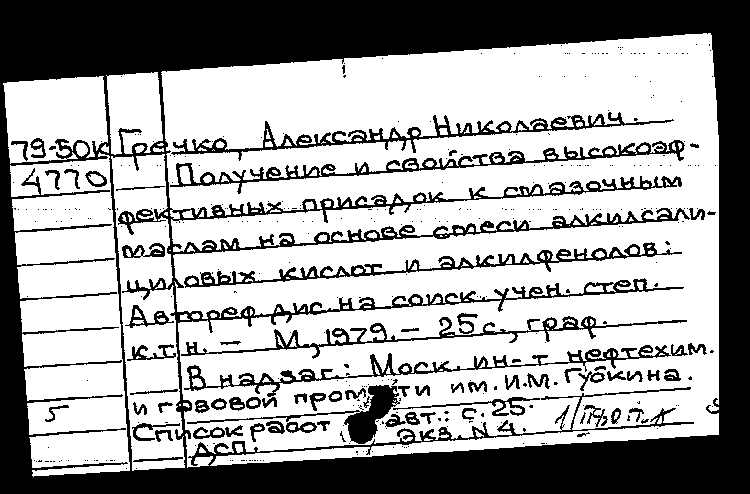 79-50К Гречко, Александр Николаевич.
4770 Получение и свойства высокоэф-
фективных присадок к смазочным
маслам на основе смеси алкилсали-
циловых кислот и алкилфенолов:
Автореф. дис. на соиск. учен. степ.
к.т.н. – М., 1979. – 25 с., граф.
В надзаг.: Моск. ин-т нефтехим.
5 и газовой пром-сти им. И.М. Губкина.
Список работ авт.: с. 25.
ДСП. Экз. N 4.